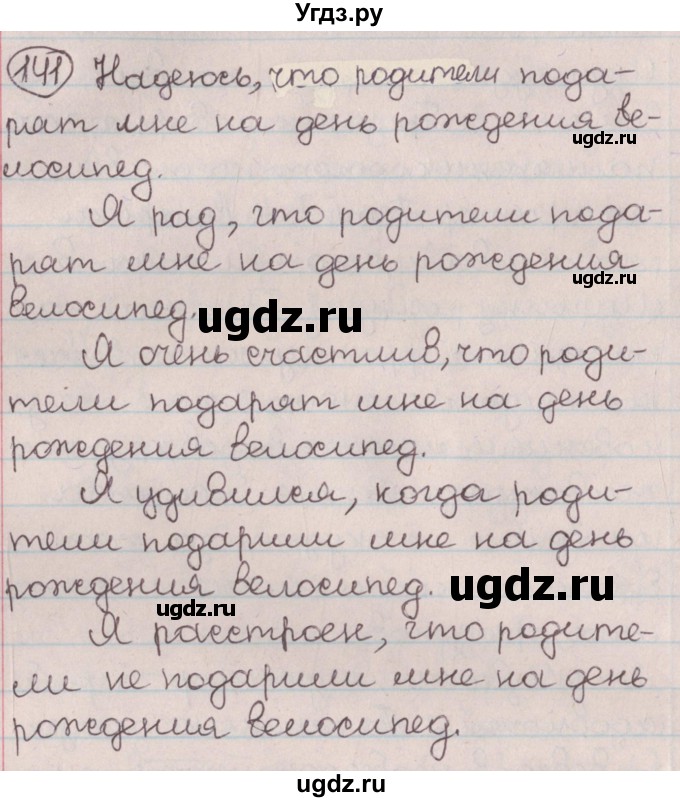 Угдз.ру
141 Надеюсь, что родители пода-
рят мне на день рождения ве-
ugdz.ru
лосипед.
Я рад, что родители пода-
рят мне на день рождения
ugdz.ru
велосипед.
ugdz.ru
Я очень счастлив, что роди-
тели подарят мне на день
рождения велосипед.
Я удивился, когда роди-
тели подарили мне на день
рождения велосипед.
ugdz.ru
ugdz.ru
Я расстроен, что родите-
ли не подарили мне на день
рождения велосипед.
ugdz.ru